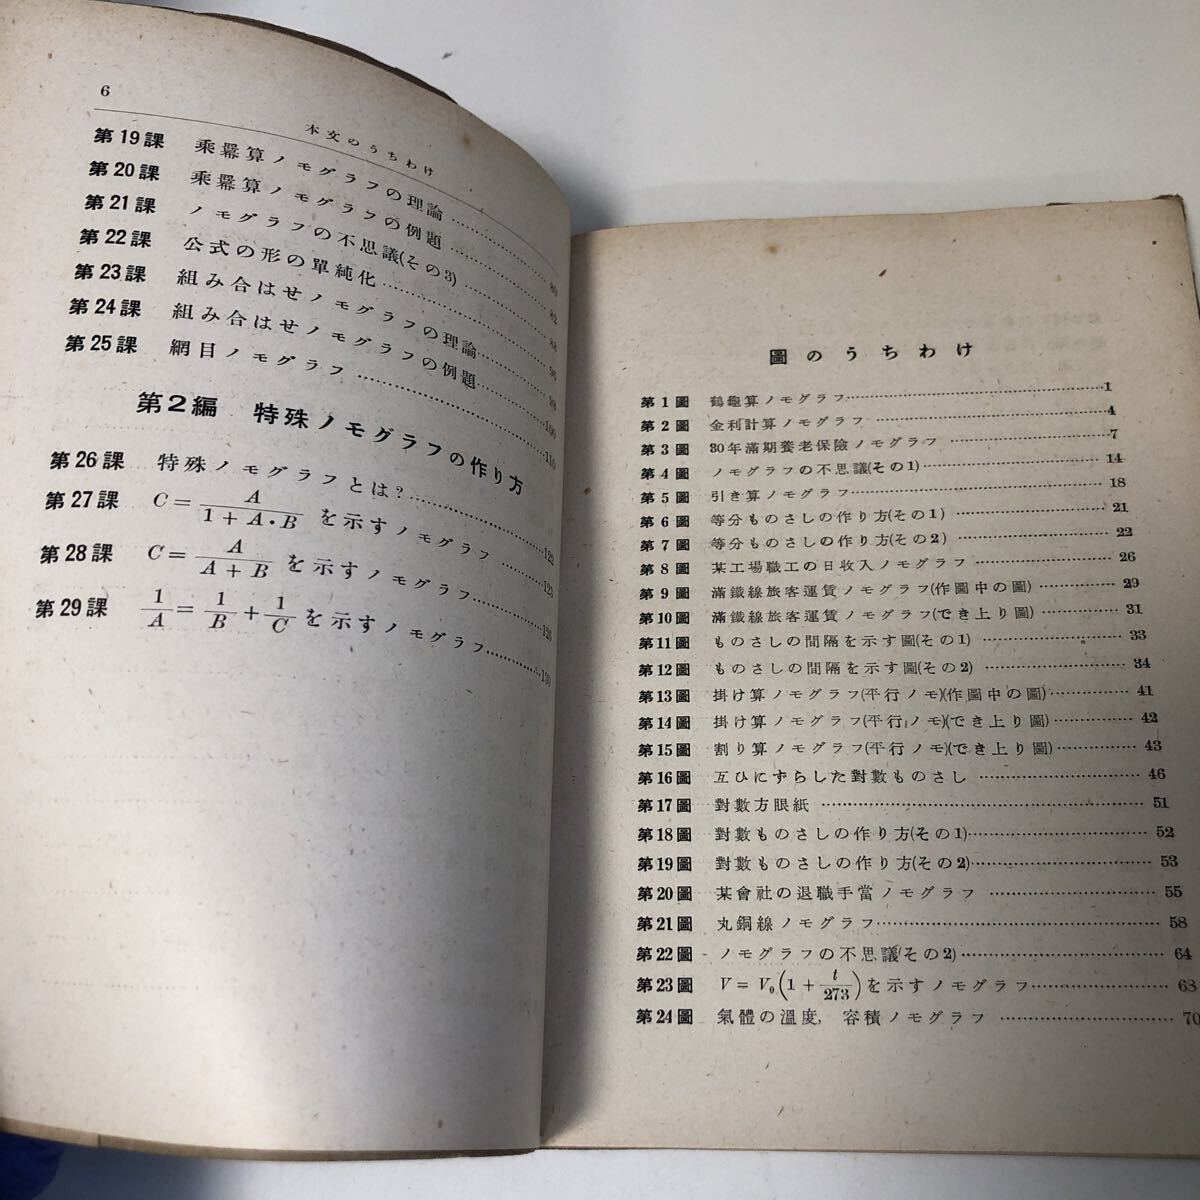 6
本文のうちわけ
第19課 乗冪算ノモグラフの理論 …… 80
第20課 乗冪算ノモグラフの例題 …… 82
第21課 ノモグラフの不思議(その3) …… 88
第22課 公式の形の單純化 …… 96
第23課 組み合はせノモグラフの理論 …… 98
第24課 組み合はせノモグラフの例題 …… 100
第25課 網目ノモグラフ …… 110
第2編 特殊ノモグラフの作り方
第26課 特殊ノモグラフとは? …… 122
第27課 C=A/(1+A・B) を示すノモグラフ …… 123
第28課 C=A/(A+B) を示すノモグラフ …… 126
第29課 1/A=1/B+1/C を示すノモグラフ …… 130
圖のうちわけ
第1圖 鶴龜算ノモグラフ …… 1
第2圖 金利計算ノモグラフ …… 4
第3圖 30年滿期養老保險ノモグラフ …… 7
第4圖 ノモグラフの不思議(その1) …… 14
第5圖 引き算ノモグラフ …… 18
第6圖 等分ものさしの作り方(その1) …… 21
第7圖 等分ものさしの作り方(その2) …… 22
第8圖 某工場職工の日收入ノモグラフ …… 26
第9圖 滿鐵線旅客運賃ノモグラフ(作圖中の圖) …… 29
第10圖 滿鐵線旅客運賃ノモグラフ(でき上り圖) …… 31
第11圖 ものさしの間隔を示す圖(その1) …… 33
第12圖 ものさしの間隔を示す圖(その2) …… 34
第13圖 掛け算ノモグラフ(平行ノモ)(作圖中の圖) …… 41
第14圖 掛け算ノモグラフ(平行ノモ)(でき上り圖) …… 42
第15圖 割り算ノモグラフ(平行ノモ)(でき上り圖) …… 43
第16圖 互ひにずらした對數ものさし …… 46
第17圖 對數方眼紙 …… 51
第18圖 對數ものさしの作り方(その1) …… 52
第19圖 對數ものさしの作り方(その2) …… 53
第20圖 某會社の退職手當ノモグラフ …… 55
第21圖 丸銅線ノモグラフ …… 58
第22圖 ノモグラフの不思議(その2) …… 64
第23圖 V=V₀(1+t/273)を示すノモグラフ …… 68
第24圖 氣體の溫度, 容積ノモグラフ …… 70